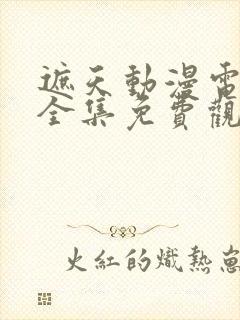 遮天動漫電
全集免費觀
火紅的熾熱